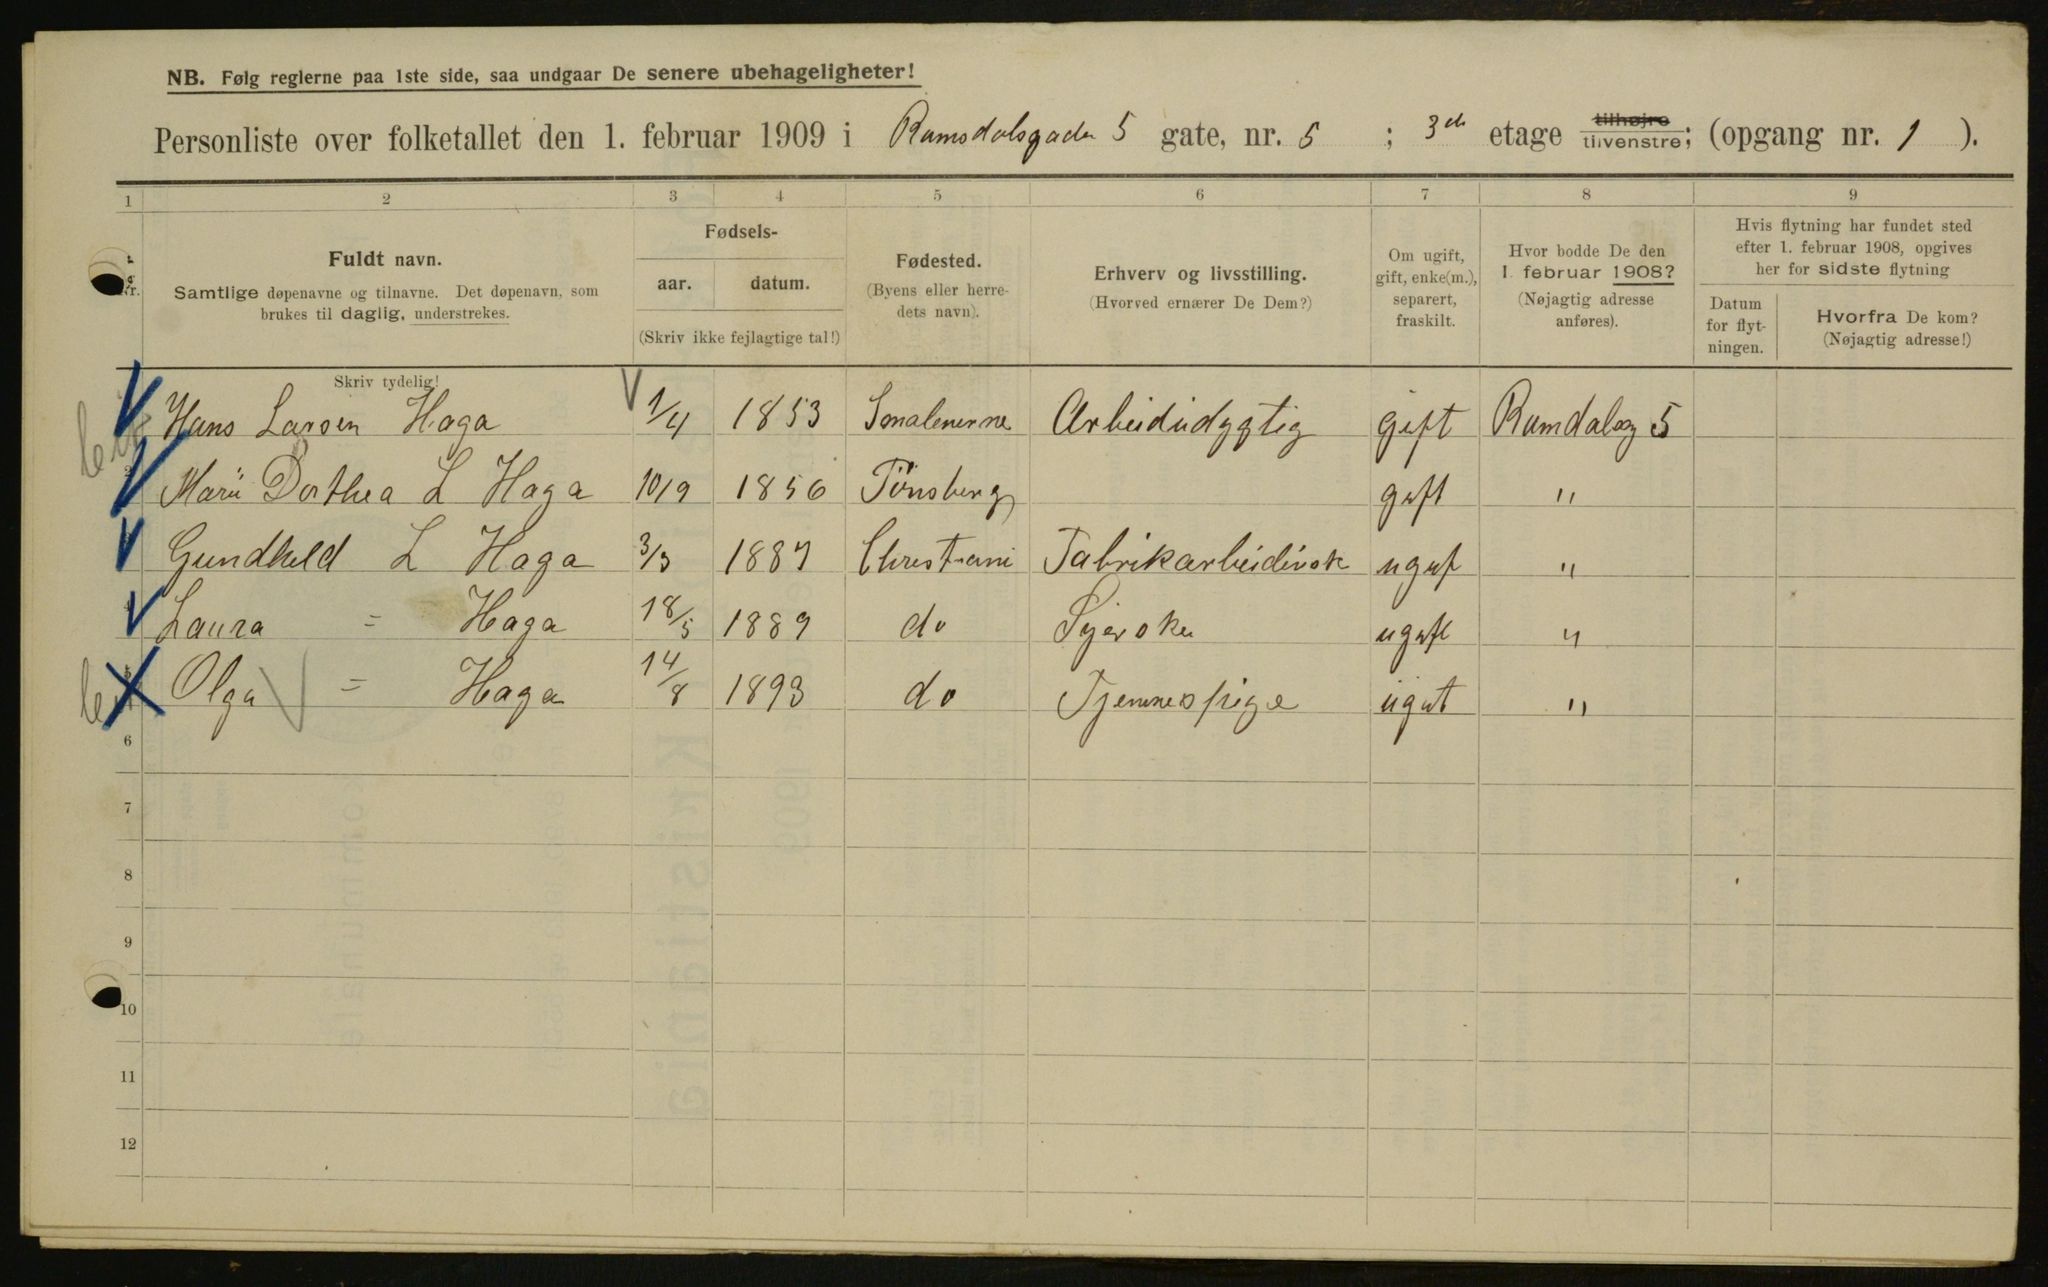 NB. Følg reglerne paa 1ste side, saa undgaar De senere ubehageligheter!
Personliste over folketallet den 1. februar 1909 i Ramsdalsgaden 5 gate, nr. 5 ; 3die etage tilhøjre tilvenstre; (opgang nr. 1 ).
1 2 3 4 5 6 7 8 9
Fuldt navn.
Samtlige døpenavne og tilnavne. Det døpenavn, som
brukes til daglig, understrekes.
Skriv tydelig!
Fødsels-
aar. datum.
(Skriv ikke fejlagtige tal!)
Fødested.
(Byens eller herre-
dets navn).
Erhverv og livsstilling.
(Hvorved ernærer De Dem?)
Om ugift,
gift, enke(m.),
separert,
fraskilt.
Hvor bodde De den
1. februar 1908?
(Nøjagtig adresse
anføres).
Hvis flytning har fundet sted
efter 1. februar 1908, opgives
her for sidste flytning
Datum
for flyt-
ningen.
Hvorfra De kom?
(Nøjagtig adresse!)
Hans Larsen Haga 1/4 1853 Smalenerne Arbeidudygtig gift Ramdalsg 5
Marie Dorthea L Haga 10/9 1856 Tönsberg gift "
Gundhild L Haga 3/3 1887 Christiani Fabrikarbeiderske ugif "
Laura = Haga 18/5 1889 do Syerske ugift "
Olga = Haga 14/8 1893 do Tjennespige ugit "
6
7
8
9
10
11
12